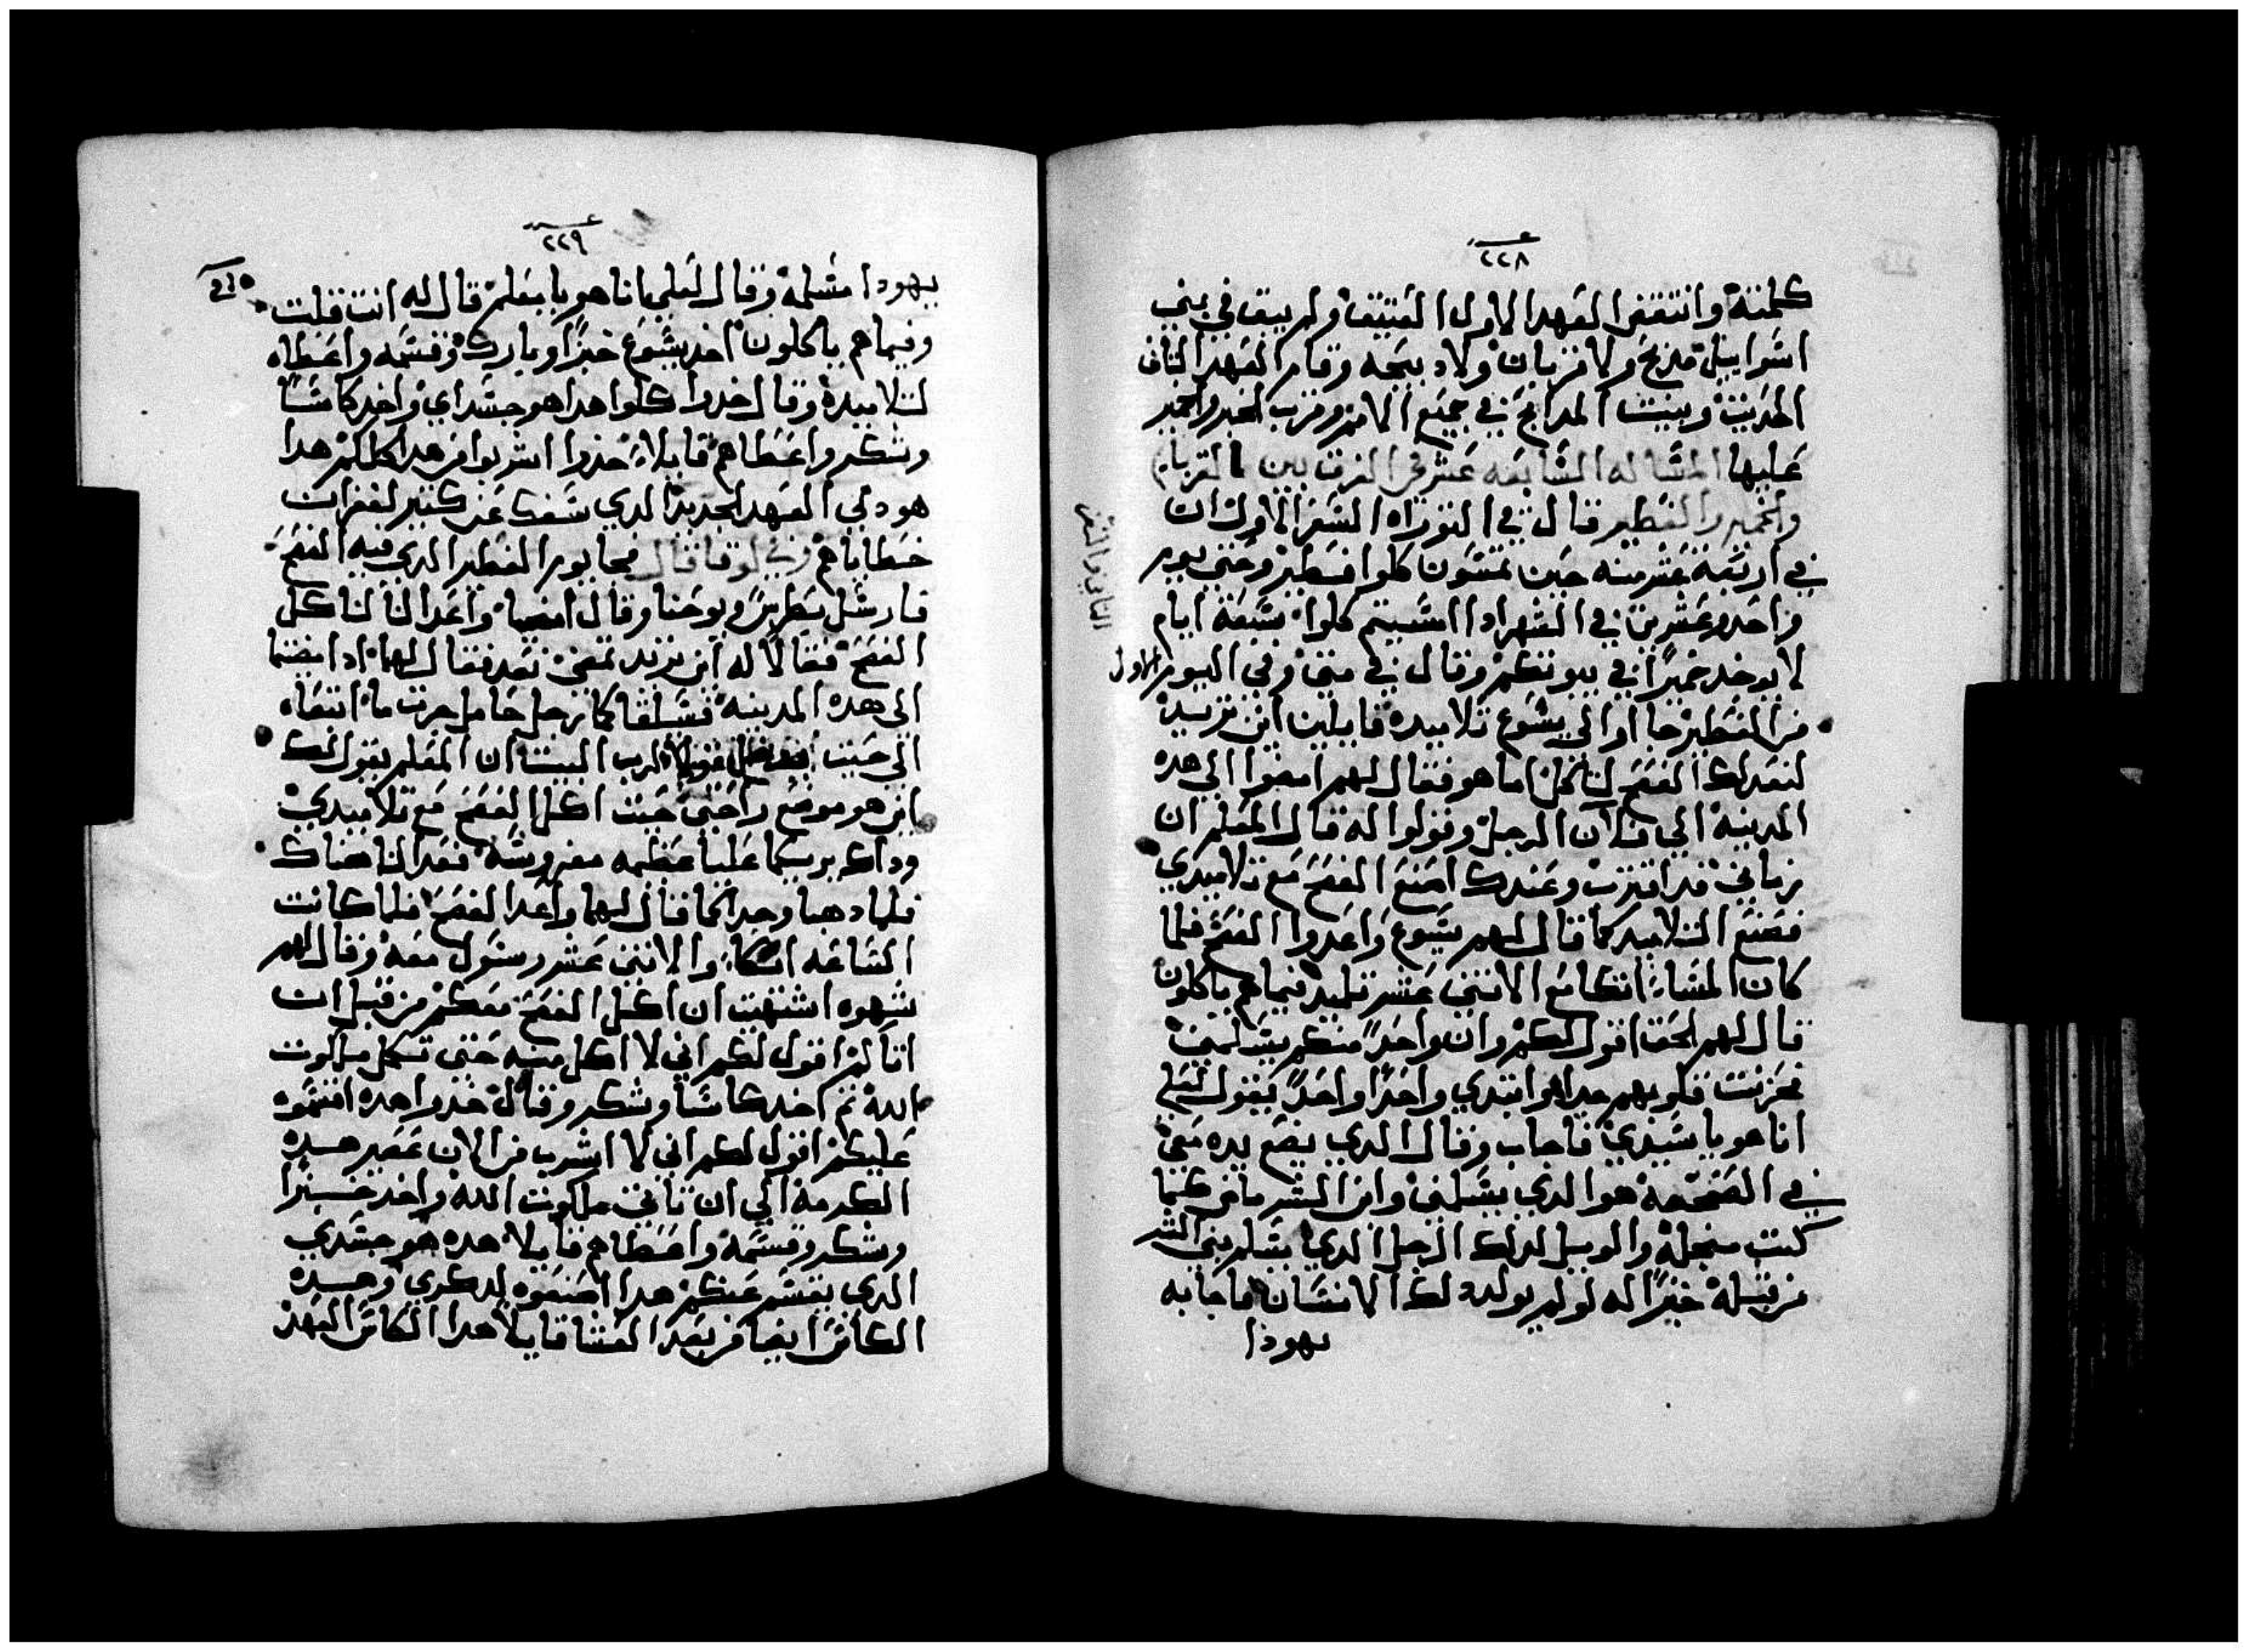 ٢٢٨
كلمته وانتقض العهد الاول العتيق ولم يبق في بني
اسراييل مدبح ولا قربان ولا دبيحه وقام العهد التانى
الحديث وبنيت المدابح في جميع الامم وقرب الخبز والخمر
عليها المساله السابعه عشر في الفرق بين القربان
والخمير والفطير قال في التوراه السفر الاول ان
التاني والسفر
في اربعة عشر منه حين تمسون كلوا فطير وحتي يوم
واحد وعشرين في الشهر ادا امسيتم كلوا سبعة ايام
لا يوخد خميرًا في بيوتكم وقال في متى وفي اليوم الاول
من الفطير جاأوا الي يسوع تلاميده قايلين اين تريد
لنعد لك الفصح لتاكل اما هو فقال لهم امضوا الي هده
المدينه الي فلان الرجل وقولوا له قال المعلم ان
زماني قد اقترب وعندك اصنع الفصح مع تلاميدي
فصنع التلاميد كما قال لهم يسوع واعدوا الفصح فلما
كان المساء اتكا مع الاتني عشر تلميد فيما هم ياكلون
قال لهم الحق اقول لكم وان واحدً منكم يسلمنى
فحزنت قلوبهم جدا وابتدي واحدًا واحدً يقول لعلي
انا هو يا سيدي فاجاب وقال الدي يضع يده معي
في الصحفه هو الدي يسلمنى وابن البشر ماض كما
كتب من اجله والويل لدلك الرجل الدي يسلم بني البشر
من قبله خيرًا له لو لم يولد دلك الانسان فاجابه
يهودا
٢٢٩
يهودا مسلمه وقال لعلي انا هو يا معلم قال له انت قلت
وفيما هم ياكلون اخد يسوع خبزًا وبارك وقسمه واعطاه
لتلاميده وقال خدوا كلوا هدا هو جسدي واخد كاسًا
وشكر واعطاهم قايلاً خذوا اشربوا من هدا كلكم هدا
هو دمي العهد الجديد الدي يسفك عن كتير لغفران
خطاياهم وفي لوقا قال فجا يوم الفطير الدي فيه الفصح
فارسل بطرس ويوحنا وقال امضيا واعدا لنا لناكل
الفصح فقالا له اين تريد نمضي نعد فقال لهما ادا مضيتما
الي هده المدينه فسيلقاكما رجل حامل جرت ما اتبعاه
الي حيت يدخل فقولا لرب البيت ان المعلم يقول لك
اين هو موضع راحتي حيت اكل الفصح مع تلاميدي
وداك يريكما عليا عظيمه مفروشه فعدا لنا هناك
فلما دهبا وجدا كما قال لهما واعدا الفصح فلما كانت
الساعه اتكا والاتني عشر رسول معه وقال لهم
شهوه اشتهيت ان اكل الفصح معكم من قبل ان
اتالم اقول لكم اني لا اكل منه حتى تكمل ملكوت
الله تم اخد كاسًا وشكر وقال خدوا هده اقتسموه
عليكم اقول لكم اني لا اشرب من الان عصير هده
الكرمه الي ان تاتي ملكوت الله واخد خبزًا
وشكر وقسمه واعطاهم قايلا هده هو جسدي
الدي يقسم عنكم هدا اصنعوه لدكري وهده
الكاس ايضا من بعد العشا قايلاً هدا الكاس العهد